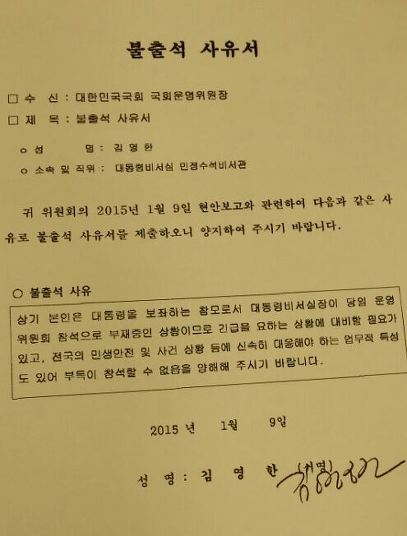 불출석 사유서
□ 수 신 : 대한민국국회 국회운영위원장
□ 제 목 : 불출석 사유서
ㅇ 성 명 : 김 영 한
ㅇ 소속 및 직위 : 대통령비서실 민정수석비서관
귀 위원회의 2015년 1월 9일 현안보고와 관련하여 다음과 같은 사
유로 불출석 사유서를 제출하오니 양지하여 주시기 바랍니다.
○ 불출석 사유
상기 본인은 대통령을 보좌하는 참모로서 대통령비서실장이 당일 운영
위원회 참석으로 부재중인 상황이므로 긴급을 요하는 상황에 대비할 필요가
있고, 전국의 민생안전 및 사건 상황 등에 신속히 대응해야 하는 업무적 특성
도 있어 부득이 참석할 수 없음을 양해해 주시기 바랍니다.
2015 년 1월 9일
성 명 : 김 영 한